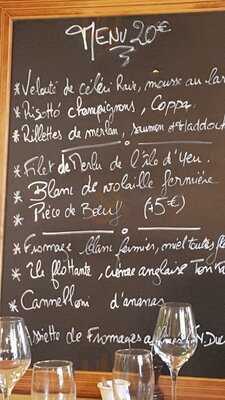 MENU 20€
* Velouté de céleri Rave, mousse au lar
* Risotto champignons, Coppa.
* Rillettes de merlan, saumon
* Filet de Merlu de l'île d'Yeu.
* Blanc de volaille fermière
* Pièce de Bœuf (+5€)
* Fromage blanc fermier, miel toutes fle
* Ile flottante, crème anglaise Ton
* Cannelloni d'ananas
ssiette de Fromages